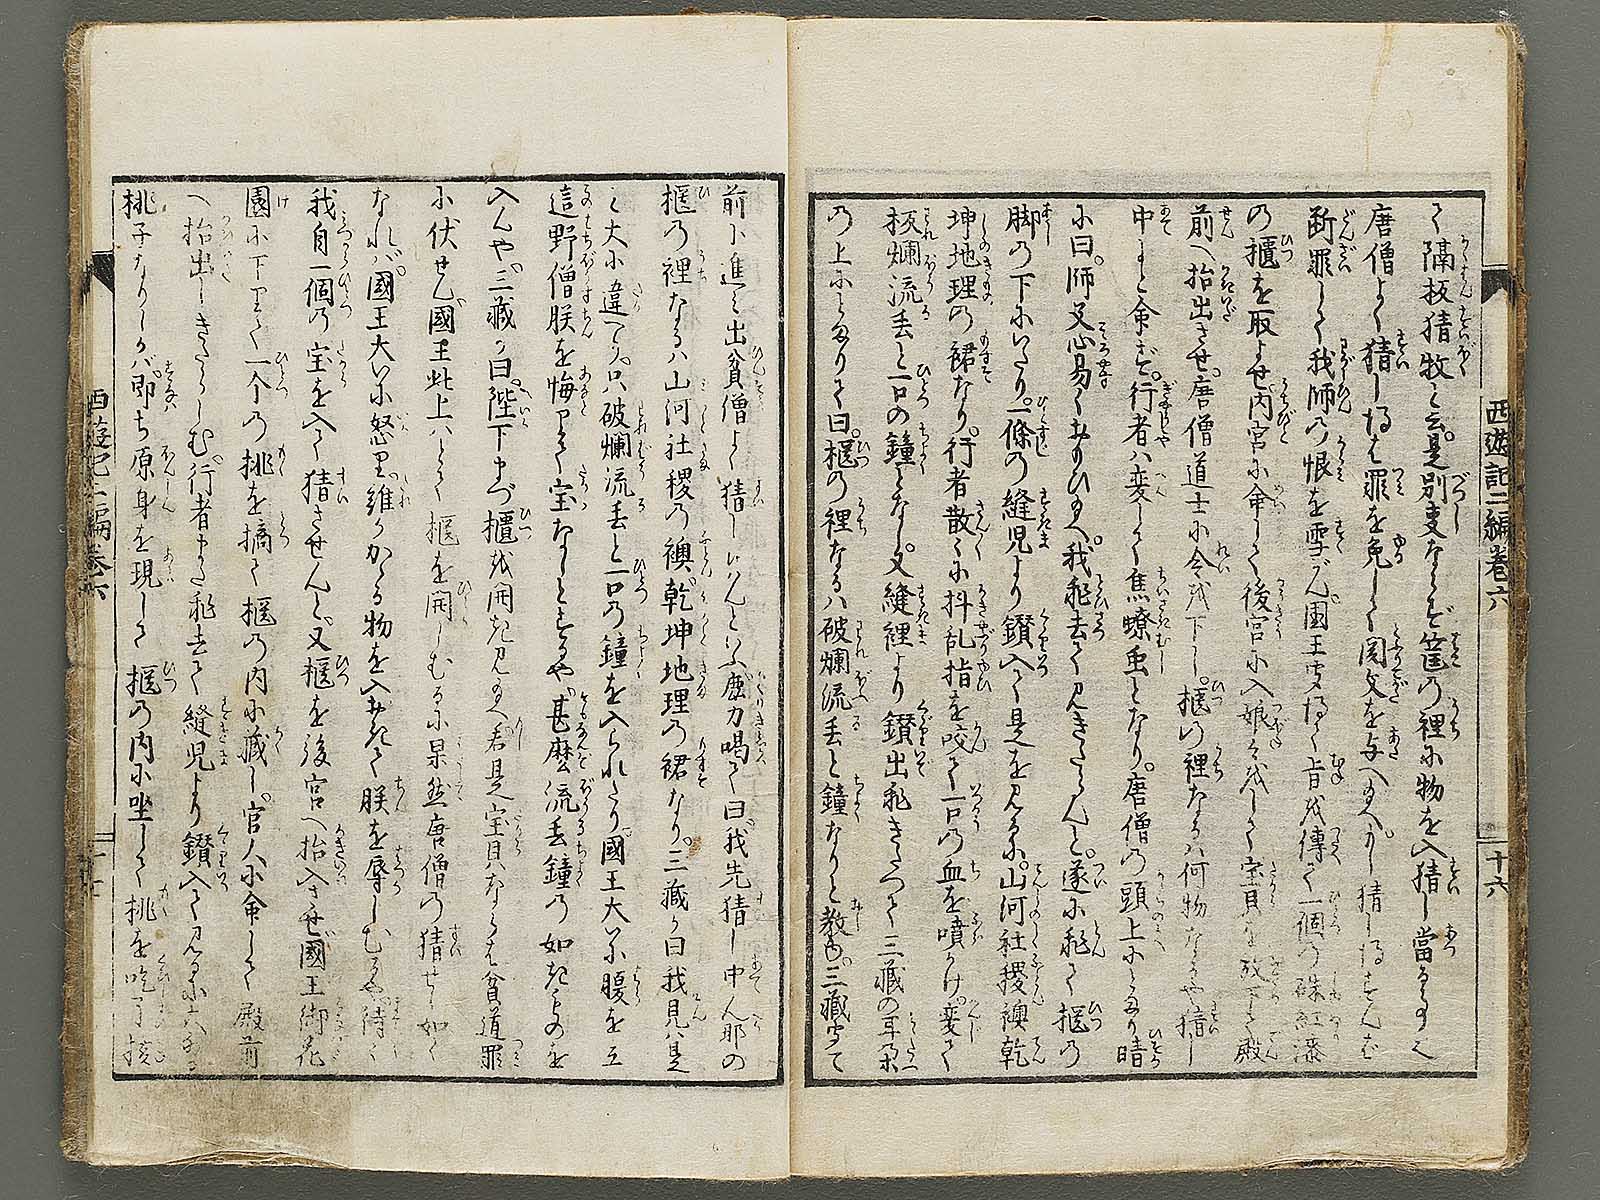 西遊記二編巻六
十六
て隔板猜牧と云是別事ならず筐の裡に物を入猜し當る事也
唐僧よく猜し得ば罪を免して関文を与へ玉へかし猜し得ずんば
断罪して我師の恨を雪がん國王实得て旨を傳て一個の硃紅漆
の櫃を取よせ内官に命じて後宮に入娘々をして宝貝を放下して殿
前へ抬出させ唐僧道士に令を下し柜の裡なるハ何物なるや猜し
中よと命ず行者ハ変して焦蟟虫となり唐僧の頭上にとまり暗
に曰師父心易くおもひ玉へ我飛去て見きたらんと遂に飛で柜の
脚の下にいたり一條の縫児より鑚入て是を見るに山河社稷襖乾
坤地理の裙なり行者散々に抖乱指を咬て一口の血を噴かけ変て
破爛流丢と一口の鐘となし又縫裡より鑚出飛きたつて三蔵の耳朶
の上にとまりて曰柜の裡なるハ破爛流丢と鐘なりと教ゆ三蔵
前に進み出貧僧よく猜しいんといふ鹿力喝て曰我先猜し中ん那の
柜の裡なるハ山河社稷の襖乾坤地理の裙なり三蔵が曰我見ハ是
と大に違へり只破爛流丢と一口の鐘を入られたり國王大に腹を立
這野僧朕を悔りて宝なしとするや甚麼流丢鐘の如きものを
入んや三蔵が曰陛下まづ櫃を開き見玉へ若是宝貝ならば貧道罪
に伏せん國王此上ハとて柜を開しむるに果然唐僧の猜せし如く
なれバ國王大に怒り誰かかゝる物を入おきて朕を辱しむるや待く
我自一個の宝を入て猜させんと又柜を後宮へ抬入させ國王御花
園に下りて一个の桃を摘て柜の内に藏し官人に命じて殿前
へ抬出しきたらしむ行者また飛去て縫児より鑚入て見るに
桃子なりしかバ即ち原身を現して柜の内に坐して桃を吃了核
西遊記二編巻六